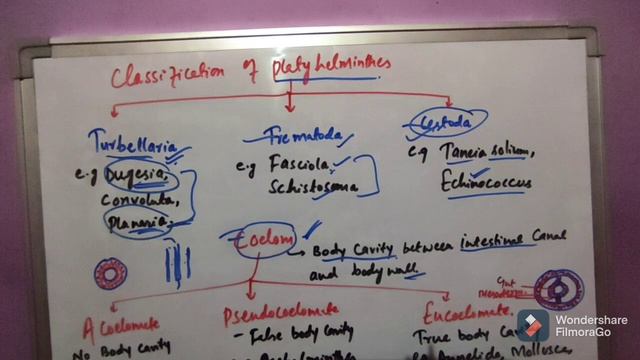 Classification of platyhelminthes
Turbellaria
e.g Dugesia,
Convoluta,
Planaria.
Trematoda
e.g Fasciola,
Schistosoma
Cestoda
e.g Taneia solium,
Echinococcus
Coelom
Body Cavity between intestinal Canal
and body wall
Gut
mesoderm
Acoelomate
No Body cavity
Pseudocoelomate
- False body cavity
Eucoelomate.
True body
Annelida, Mollusca
Wondershare
FilmoraGo